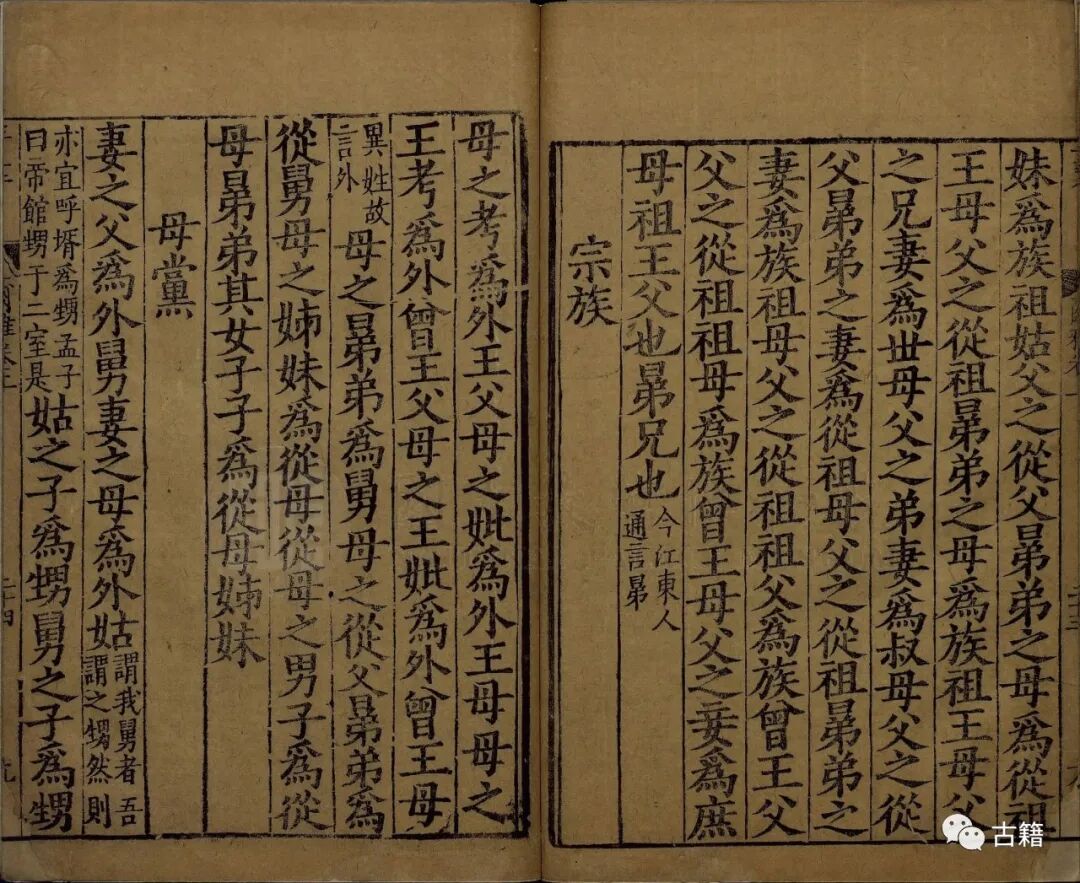 妹爲族祖姑父之從父晜弟之母爲從祖
王母父之從祖晜弟之母爲族祖王母父
之兄妻爲世母父之弟妻爲叔母父之從
父晜弟之妻爲從祖母父之從祖晜弟之
妻爲族祖母父之從祖祖父爲族曾王父
父之從祖祖母爲族曾王母父之妾爲庶
母祖王父也晜兄也今江東人
通言晜
宗族
母之考爲外王父母之妣爲外王母母之
王考爲外曾王父母之王妣爲外曾王母
異姓故
言外
母之晜弟爲舅母之從父晜弟爲
從舅母之姊妹爲從母從母之男子爲從
母晜弟其女子子爲從母姊妹
母黨
妻之父爲外舅妻之母爲外姑謂我舅者吾
謂之甥然則
亦宜呼壻爲甥孟子
曰帝館甥于二室是
姑之子爲甥舅之子爲甥
古籍